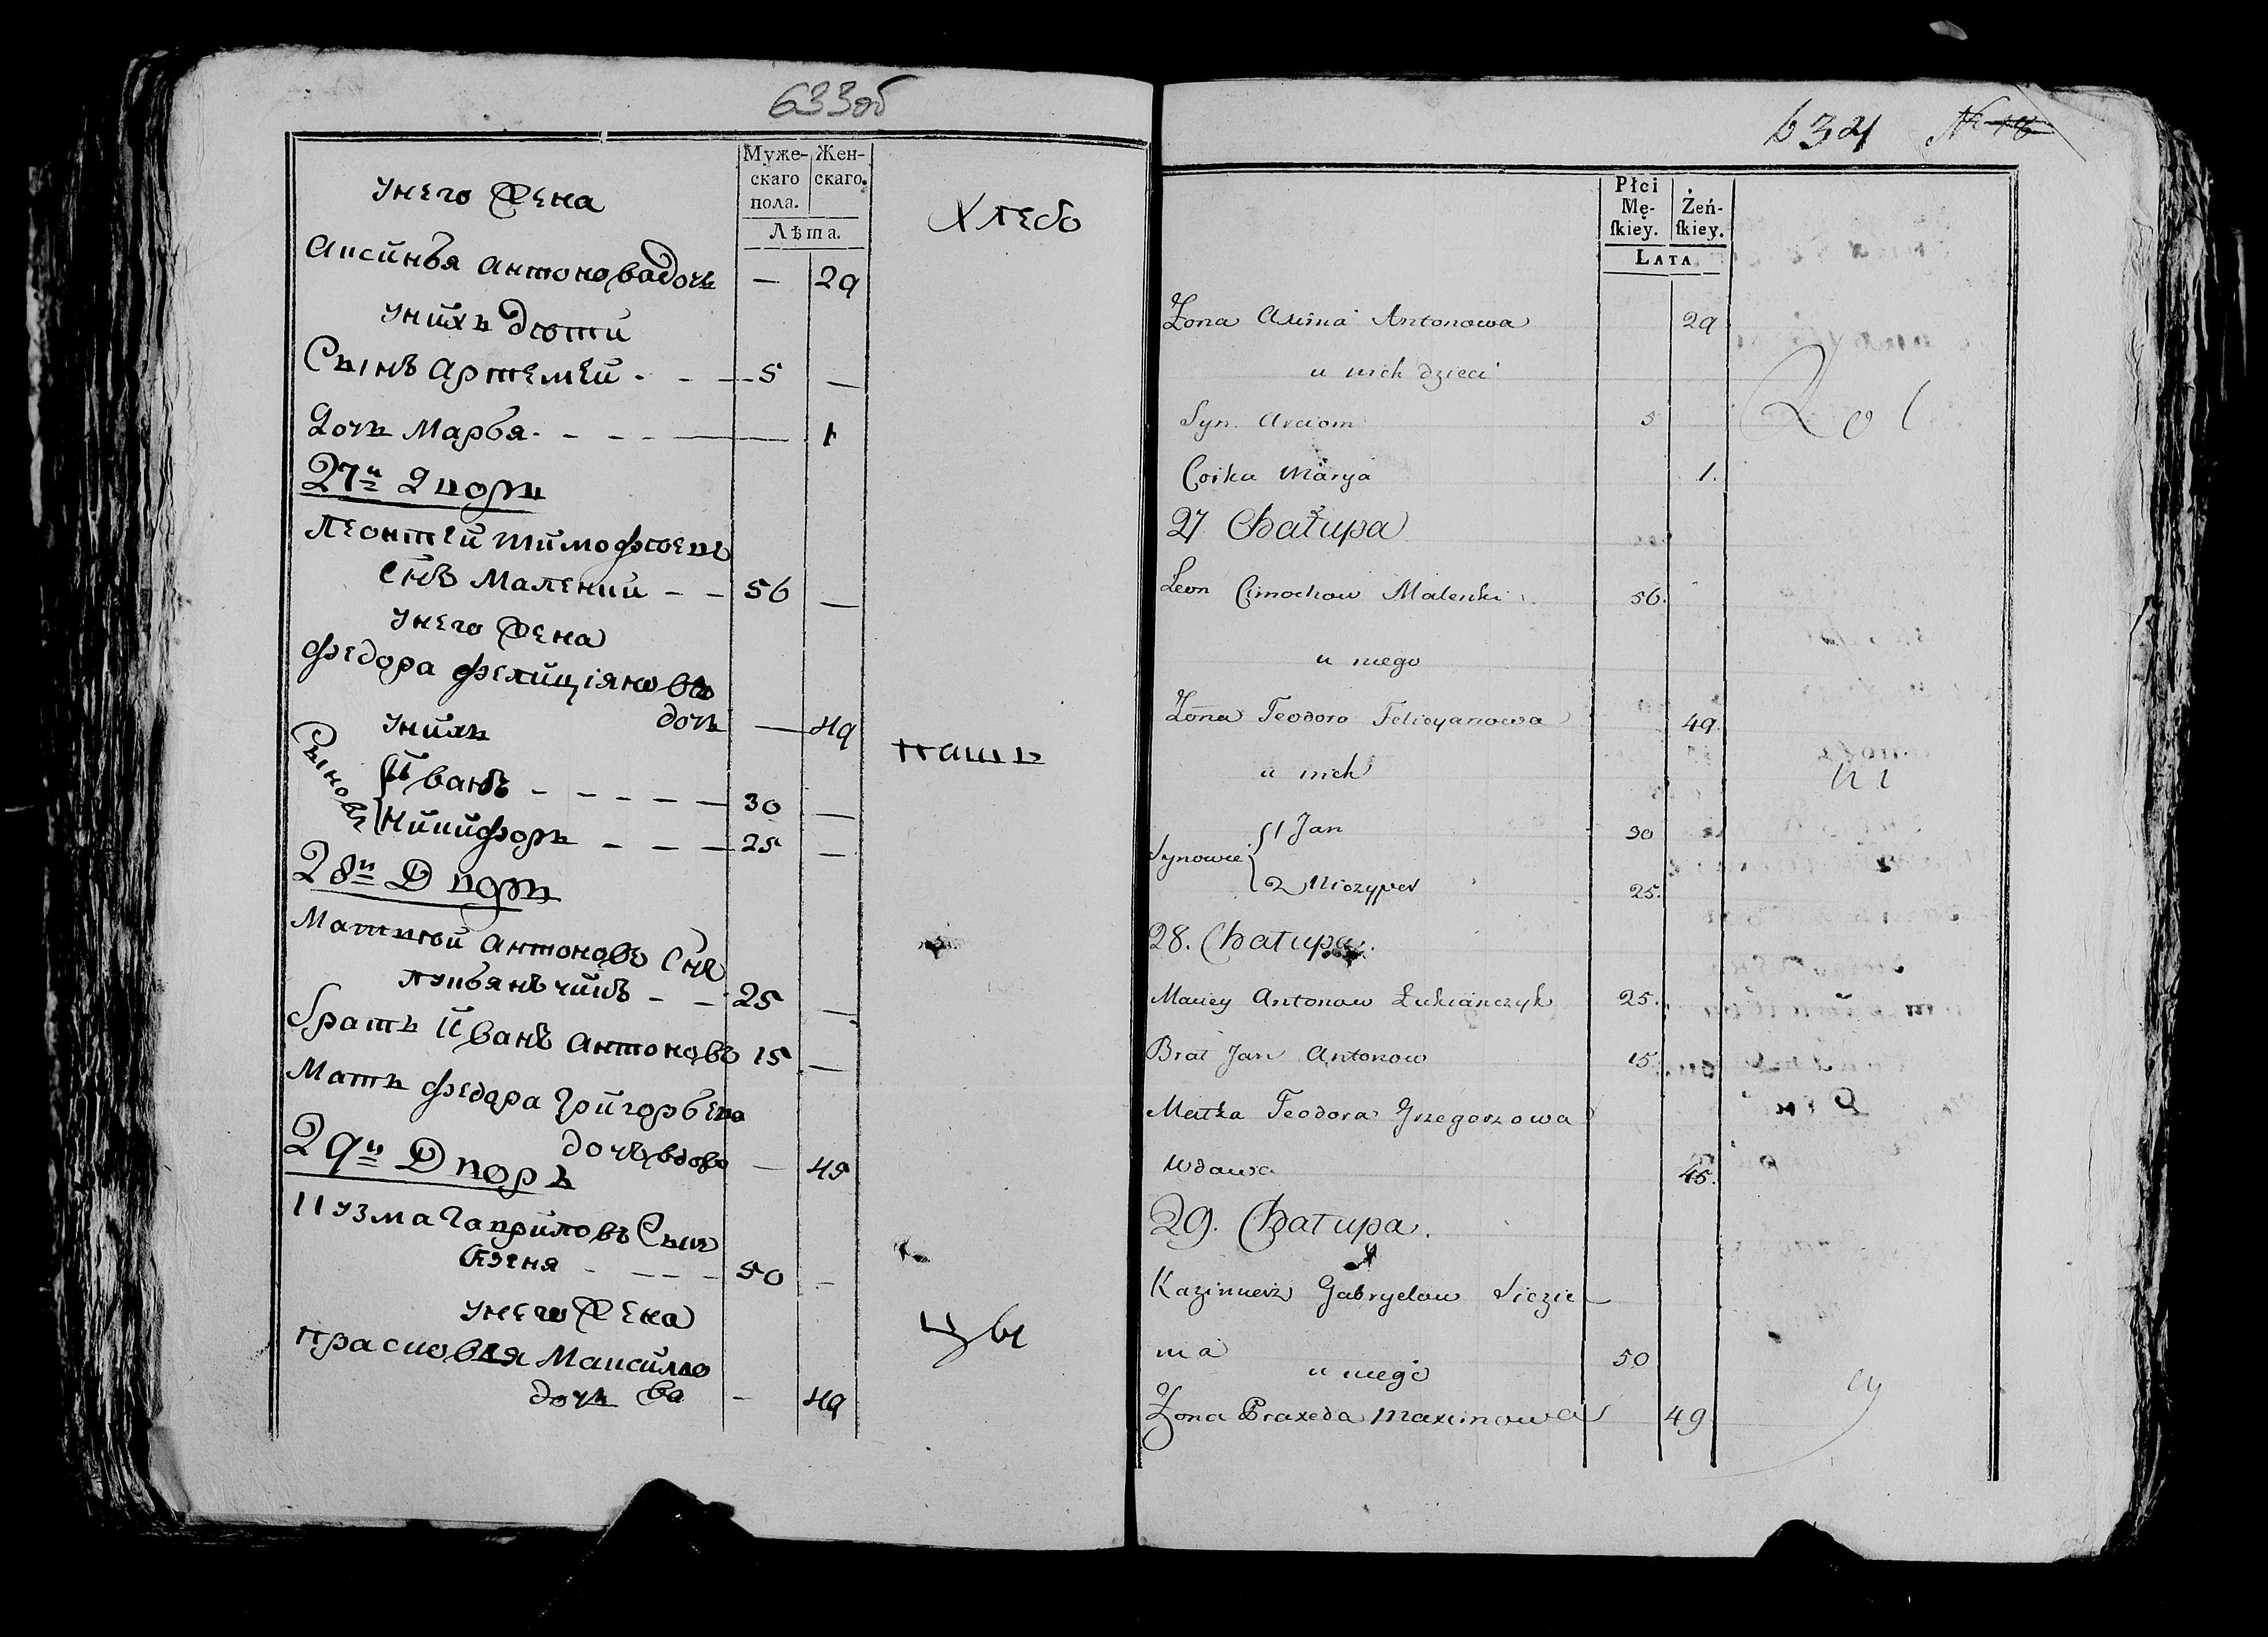 633об
Муже- Жен-
скаго скаго.
пола.
Лѣта.
унего жена
Хлебо
Аксинья антоновадочь — 29
унихъ дѣти
Сынъ артемей - - — 5 —
Дочь Марья - - - - — 1
27й Дворъ
Леонтей тимофѣевъ
Снъ Маленкий - - 56 —
унего жена
федора фелиціянова
дочь — 49
унихъ
пашъ
Сыновья
Иванъ - - - - - 30 —
Никифоръ - - - 25 —
28й Дворъ
Матвѣй антоновъ Снъ
лукьянъчикъ - - 25 —
братъ Иванъ антоновъ 15 —
Мать федора григорьева
дочь вдова — 45
29й Дворъ
Кузма Гавриловъ Сынъ
- - - - 50 —
унего жена
цы
прасковья Максимо
дочь ва — 49
634 №
Płci
Mę- Żeń-
ſkiey. ſkiey.
LATA
Żona Axinia Antonowa 29
u nich dzieci
Syn Arciom 5
Rol
Corka Marya 1.
27 Chałupa
Leon Cimochow Malenki 56.
u niego
Żona Teodora Felicyanowa 49.
u nich
ni
1 Jan 30
Synowie
2 Niczyper 25.
28. Chałupa.
Maciey Antonow Łukianczyk 25.
Brat Jan Antonow 15.
Matka Teodora Grzegorzowa
Wdowa 45.
29. Chałupa.
Kazimierz Gabryelow Siezie
nia 50
u niego
cy
Żona Praxeda Maximowa 49